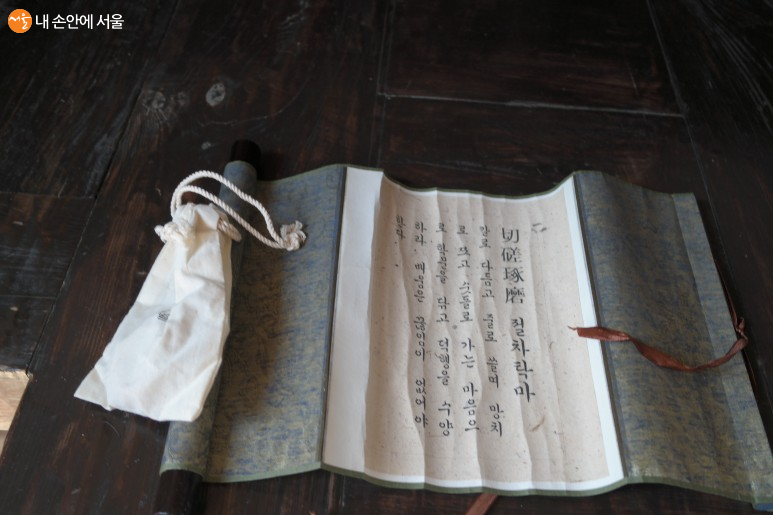 서울 내 손안에 서울
切磋琢磨 절차탁마
칼로 다듬고 줄로 쓸며 망치
로 쪼고 숫돌로 가는 마음으
로 학문을 닦고 덕행을 수양
하라. 배움은 끊임이 없어야
한다.